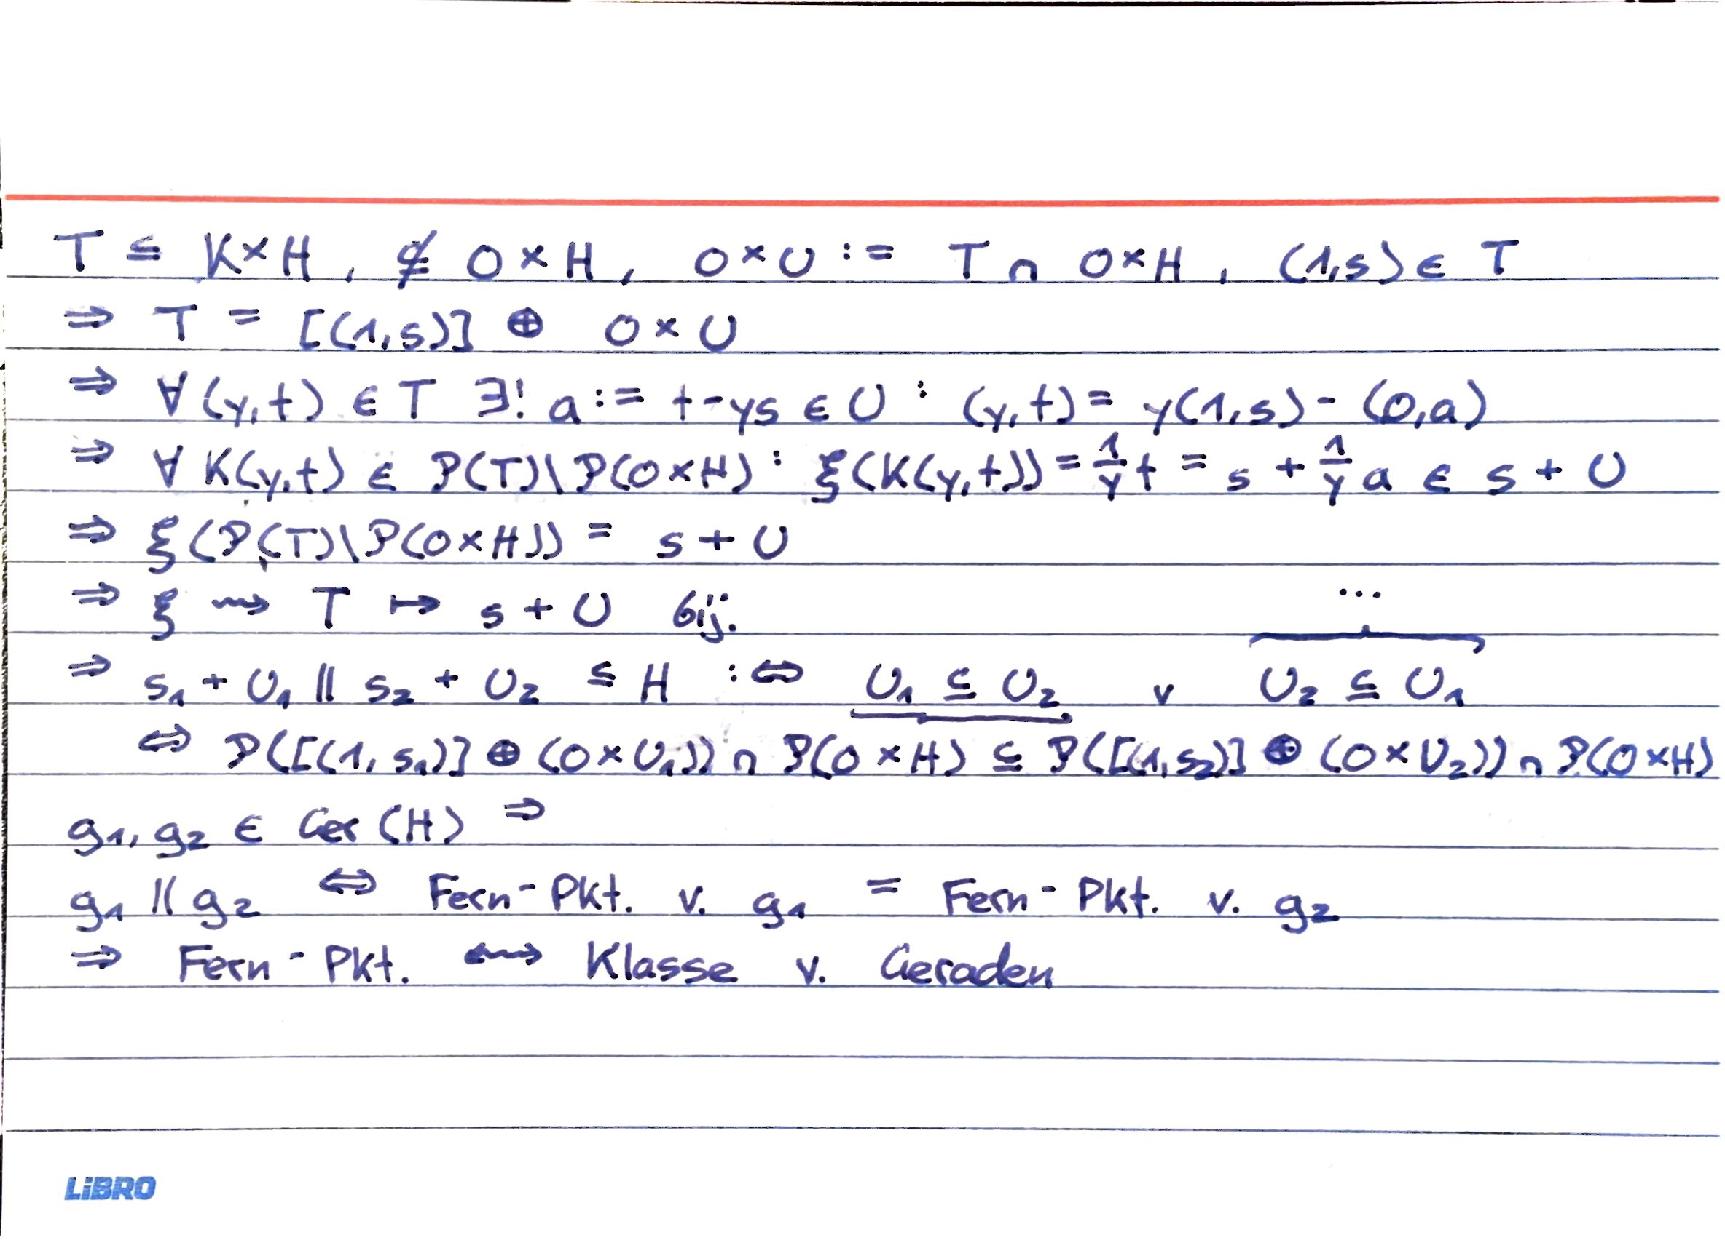 T ≤ K×H, ≰ 0×H, 0×U := T ∩ 0×H, (1,s) ∈ T
⇒ T = [(1,s)] ⊕ 0×U
⇒ ∀(y,t) ∈ T ∃! a := t-ys ∈ U : (y,t) = y(1,s) - (0,a)
⇒ ∀ K(y,t) ∈ P(T)\P(0×H) : ξ(K(y,t)) = 1/y t = s + 1/y a ∈ s + U
⇒ ξ(P(T)\P(0×H)) = s + U
⇒ ξ ⇝ T ↦ s + U bij.
...
⇒ s₁ + U₁ ∥ s₂ + U₂ ≤ H :⇔ U₁ ⊆ U₂ ∨ U₂ ⊆ U₁
⇔ P([(1,s₁)] ⊕ (0×U₁)) ∩ P(0×H) ⊆ P([(1,s₂)] ⊕ (0×U₂)) ∩ P(0×H)
g₁, g₂ ∈ Ger(H) ⇒
g₁ ∥ g₂ ⇔ Fern-Pkt. v. g₁ = Fern-Pkt. v. g₂
⇒ Fern-Pkt. ↭ Klasse v. Geraden
LiBRO